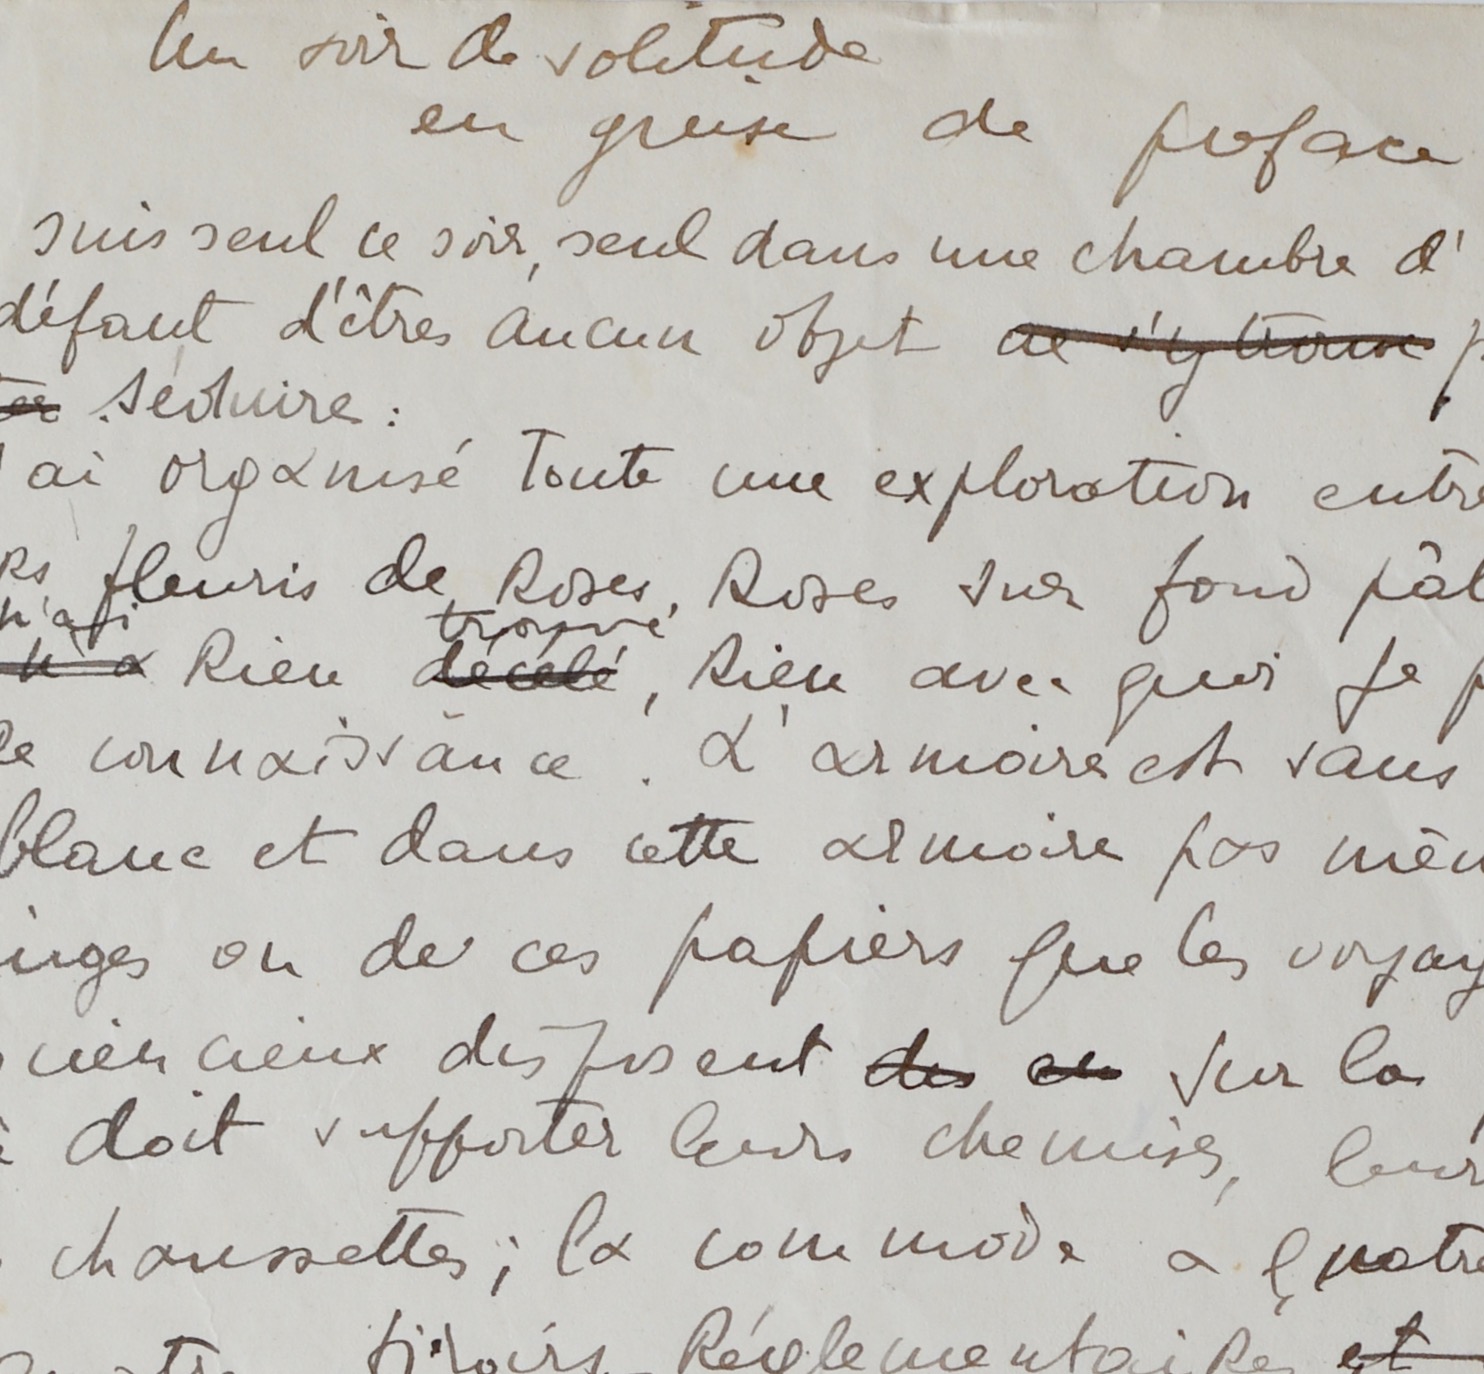 Un soir de solitude
en guise de preface
suis seul ce soir, seul dans une chambre d'
défaut d'êtres aucun objet ne s'y trouve
séduire :
ai organisé toute une exploration entre
fleuris de Roses, Roses sur fond pâl
n'a pi trouvé
n'a Rien décelé, Rien avec quoi je p
connaissance. L'armoire est sans
blanc et dans cette armoire pas mêm
inges ou de ces papiers que les voyag
ciencieux disposent des en sur la
doit supporter leurs chemises, leur
chaussettes ; la commode a quatre
tiroirs Réglementaires et